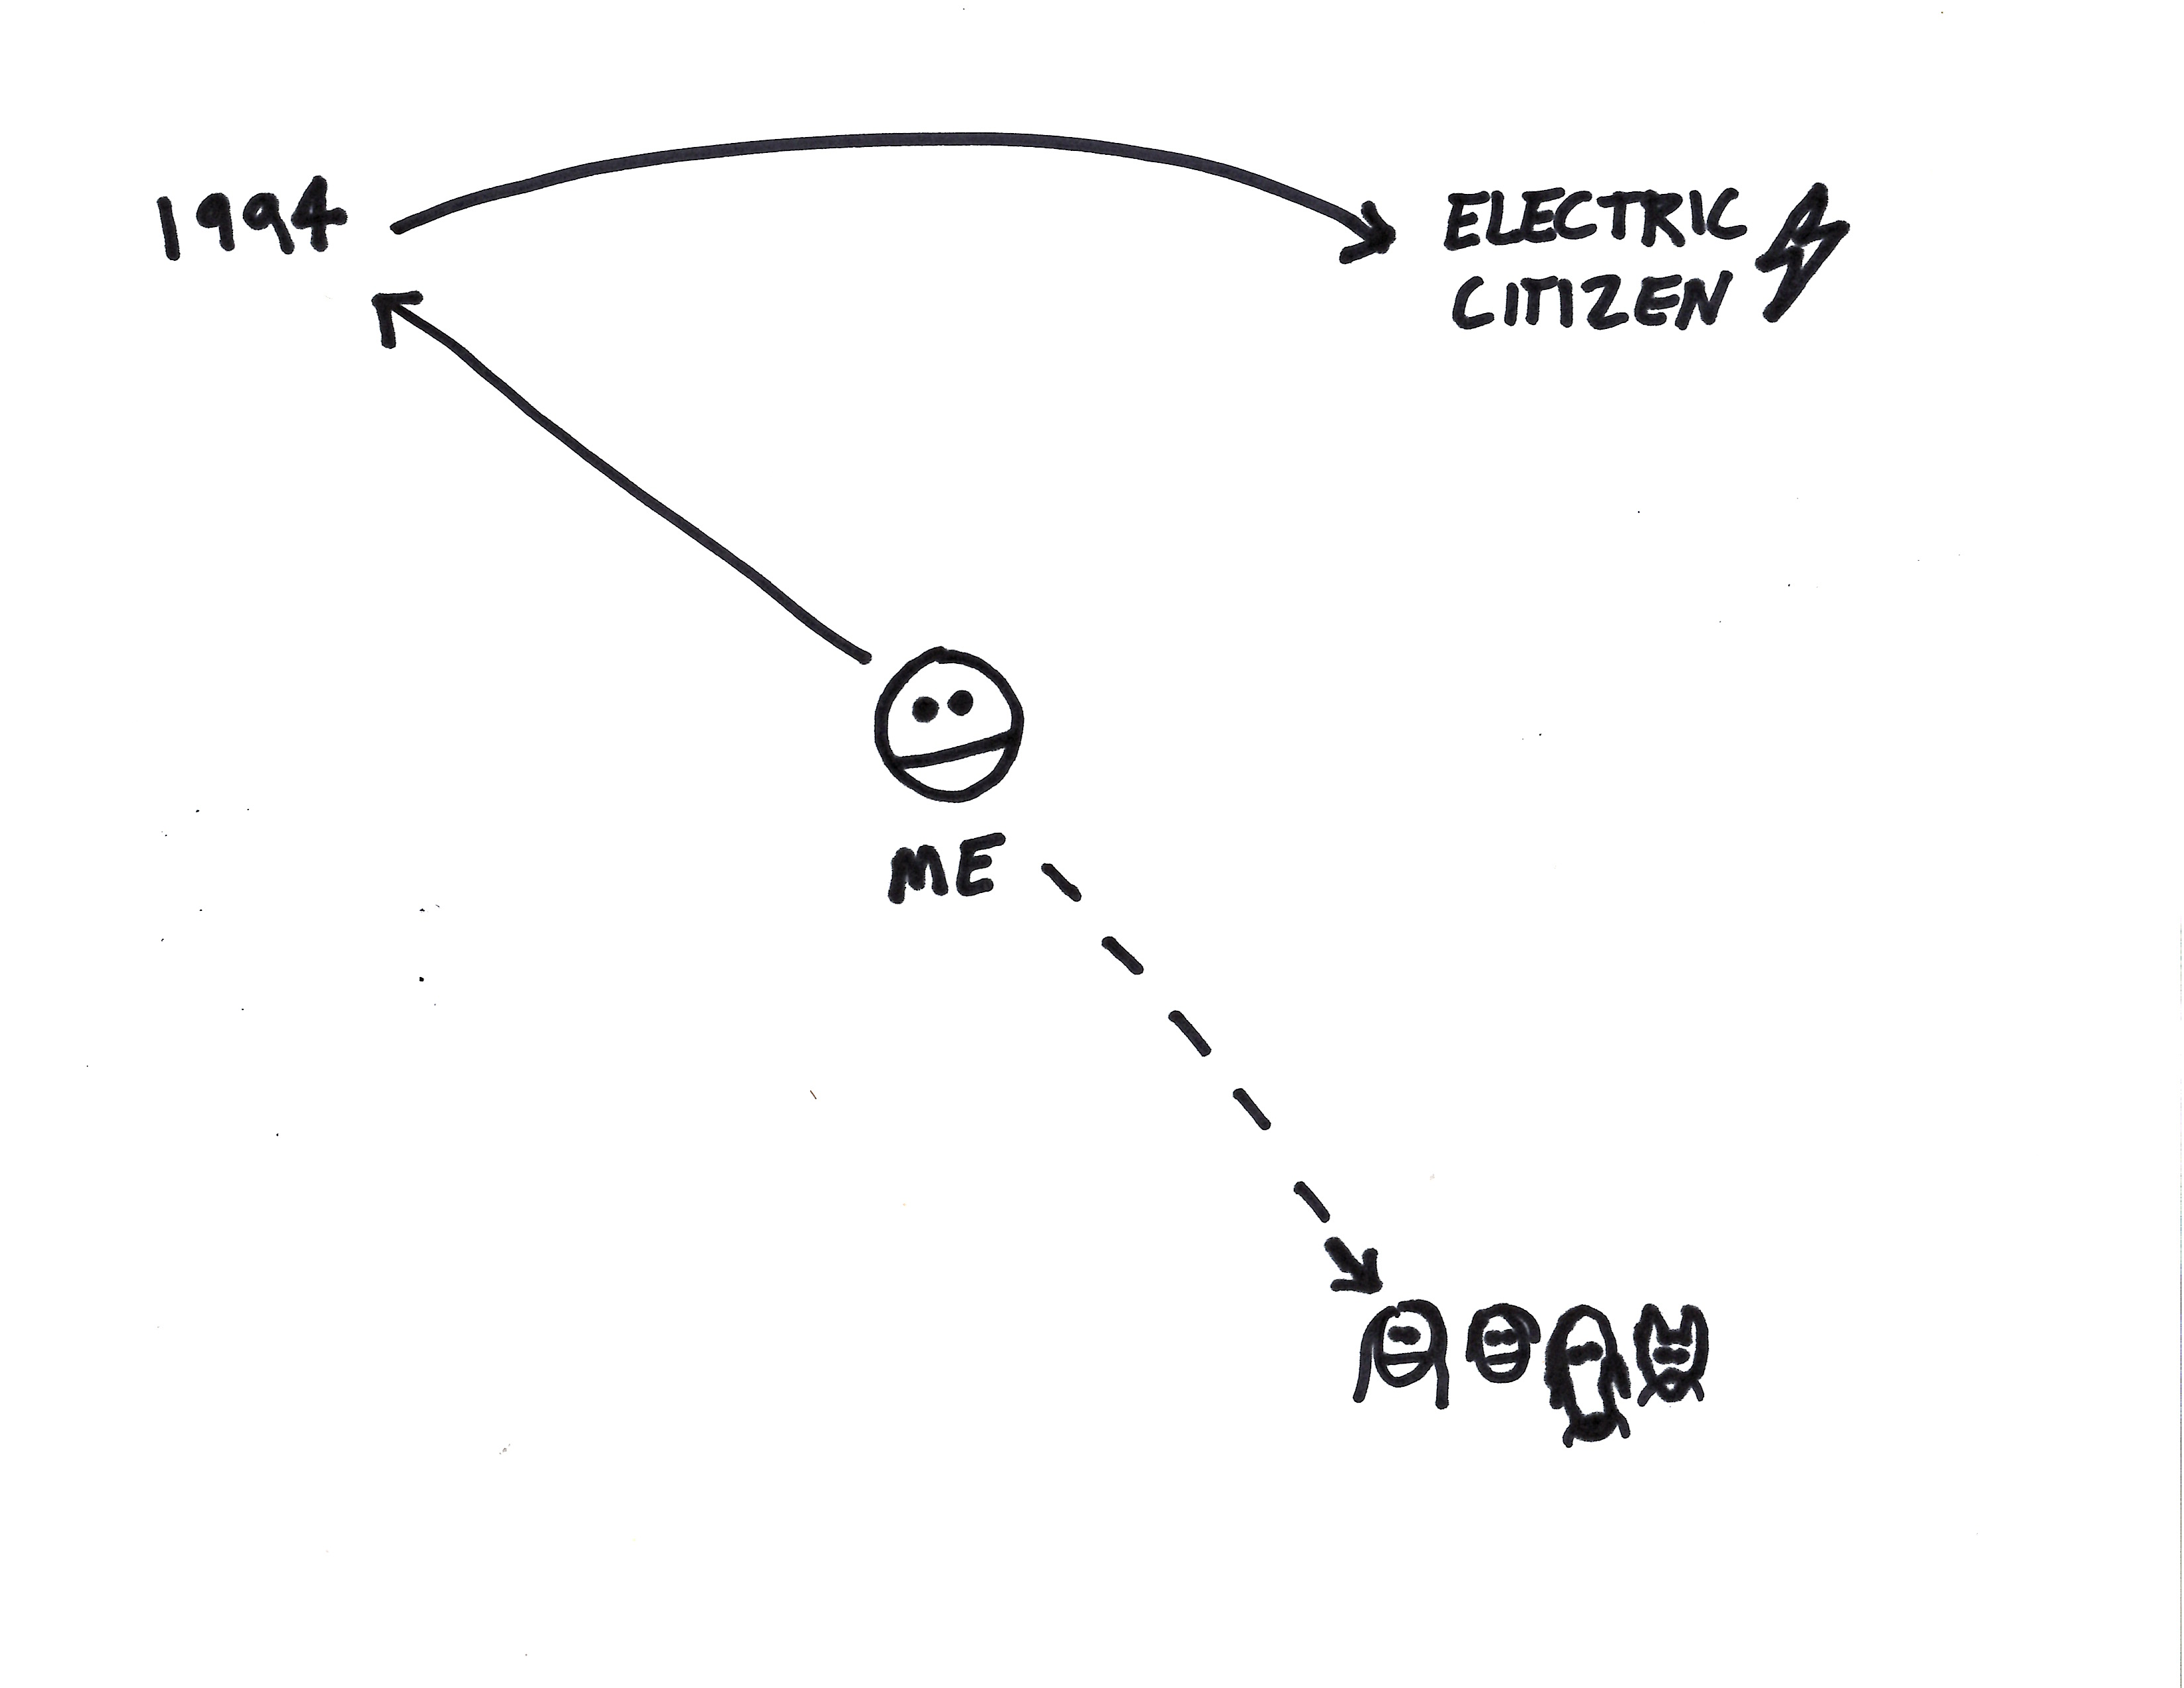 1994
ELECTRIC
CITIZEN
ME